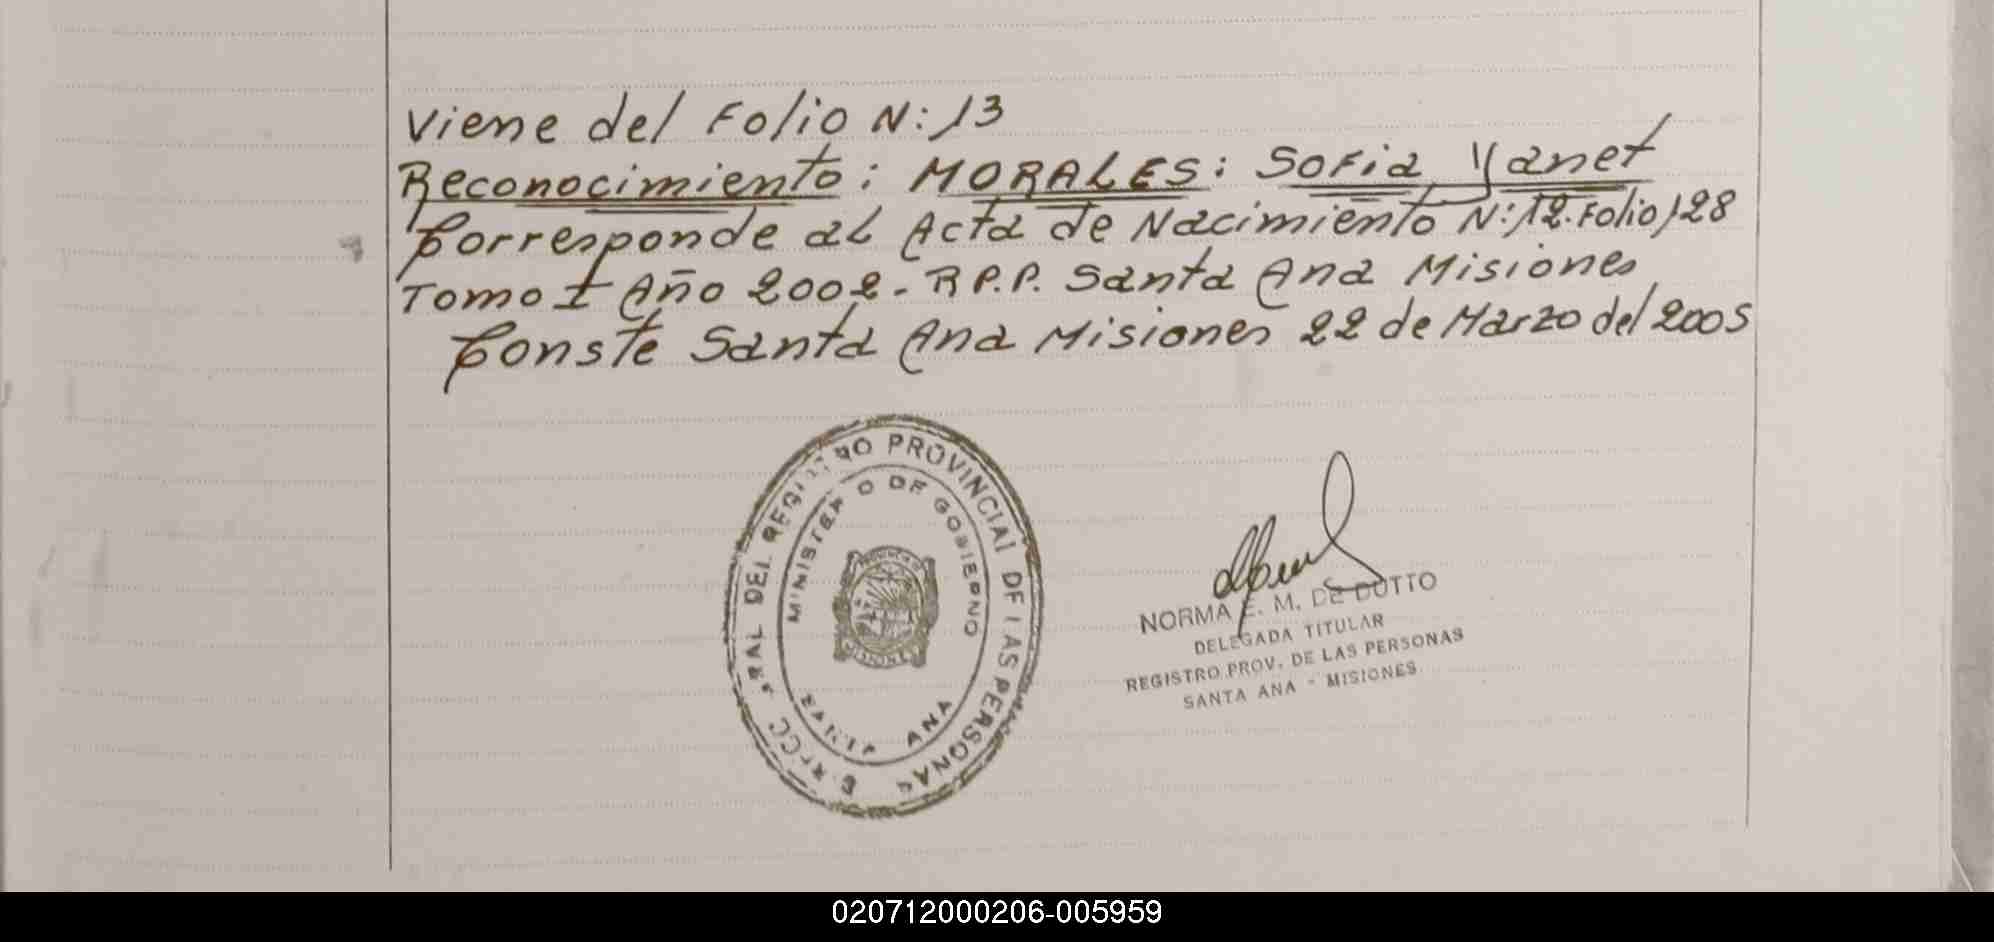 Viene del Folio N:13
Reconocimiento: MORALES: Sofia Yanet
Corresponde al Acta de Nacimiento N:12.Folio 128
Tomo I Año 2002- R P.P. Santa Ana Misiones
Conste Santa Ana Misiones 22 de Marzo del 2005
DEL REGISTRO PROVINCIAL DE LAS PERSONAS
MINISTERIO DE GOBIERNO
MISIONES
SANTA ANA
NORMA E. M. DE DUTTO
DELEGADA TITULAR
REGISTRO PROV. DE LAS PERSONAS
SANTA ANA - MISIONES
020712000206-005959